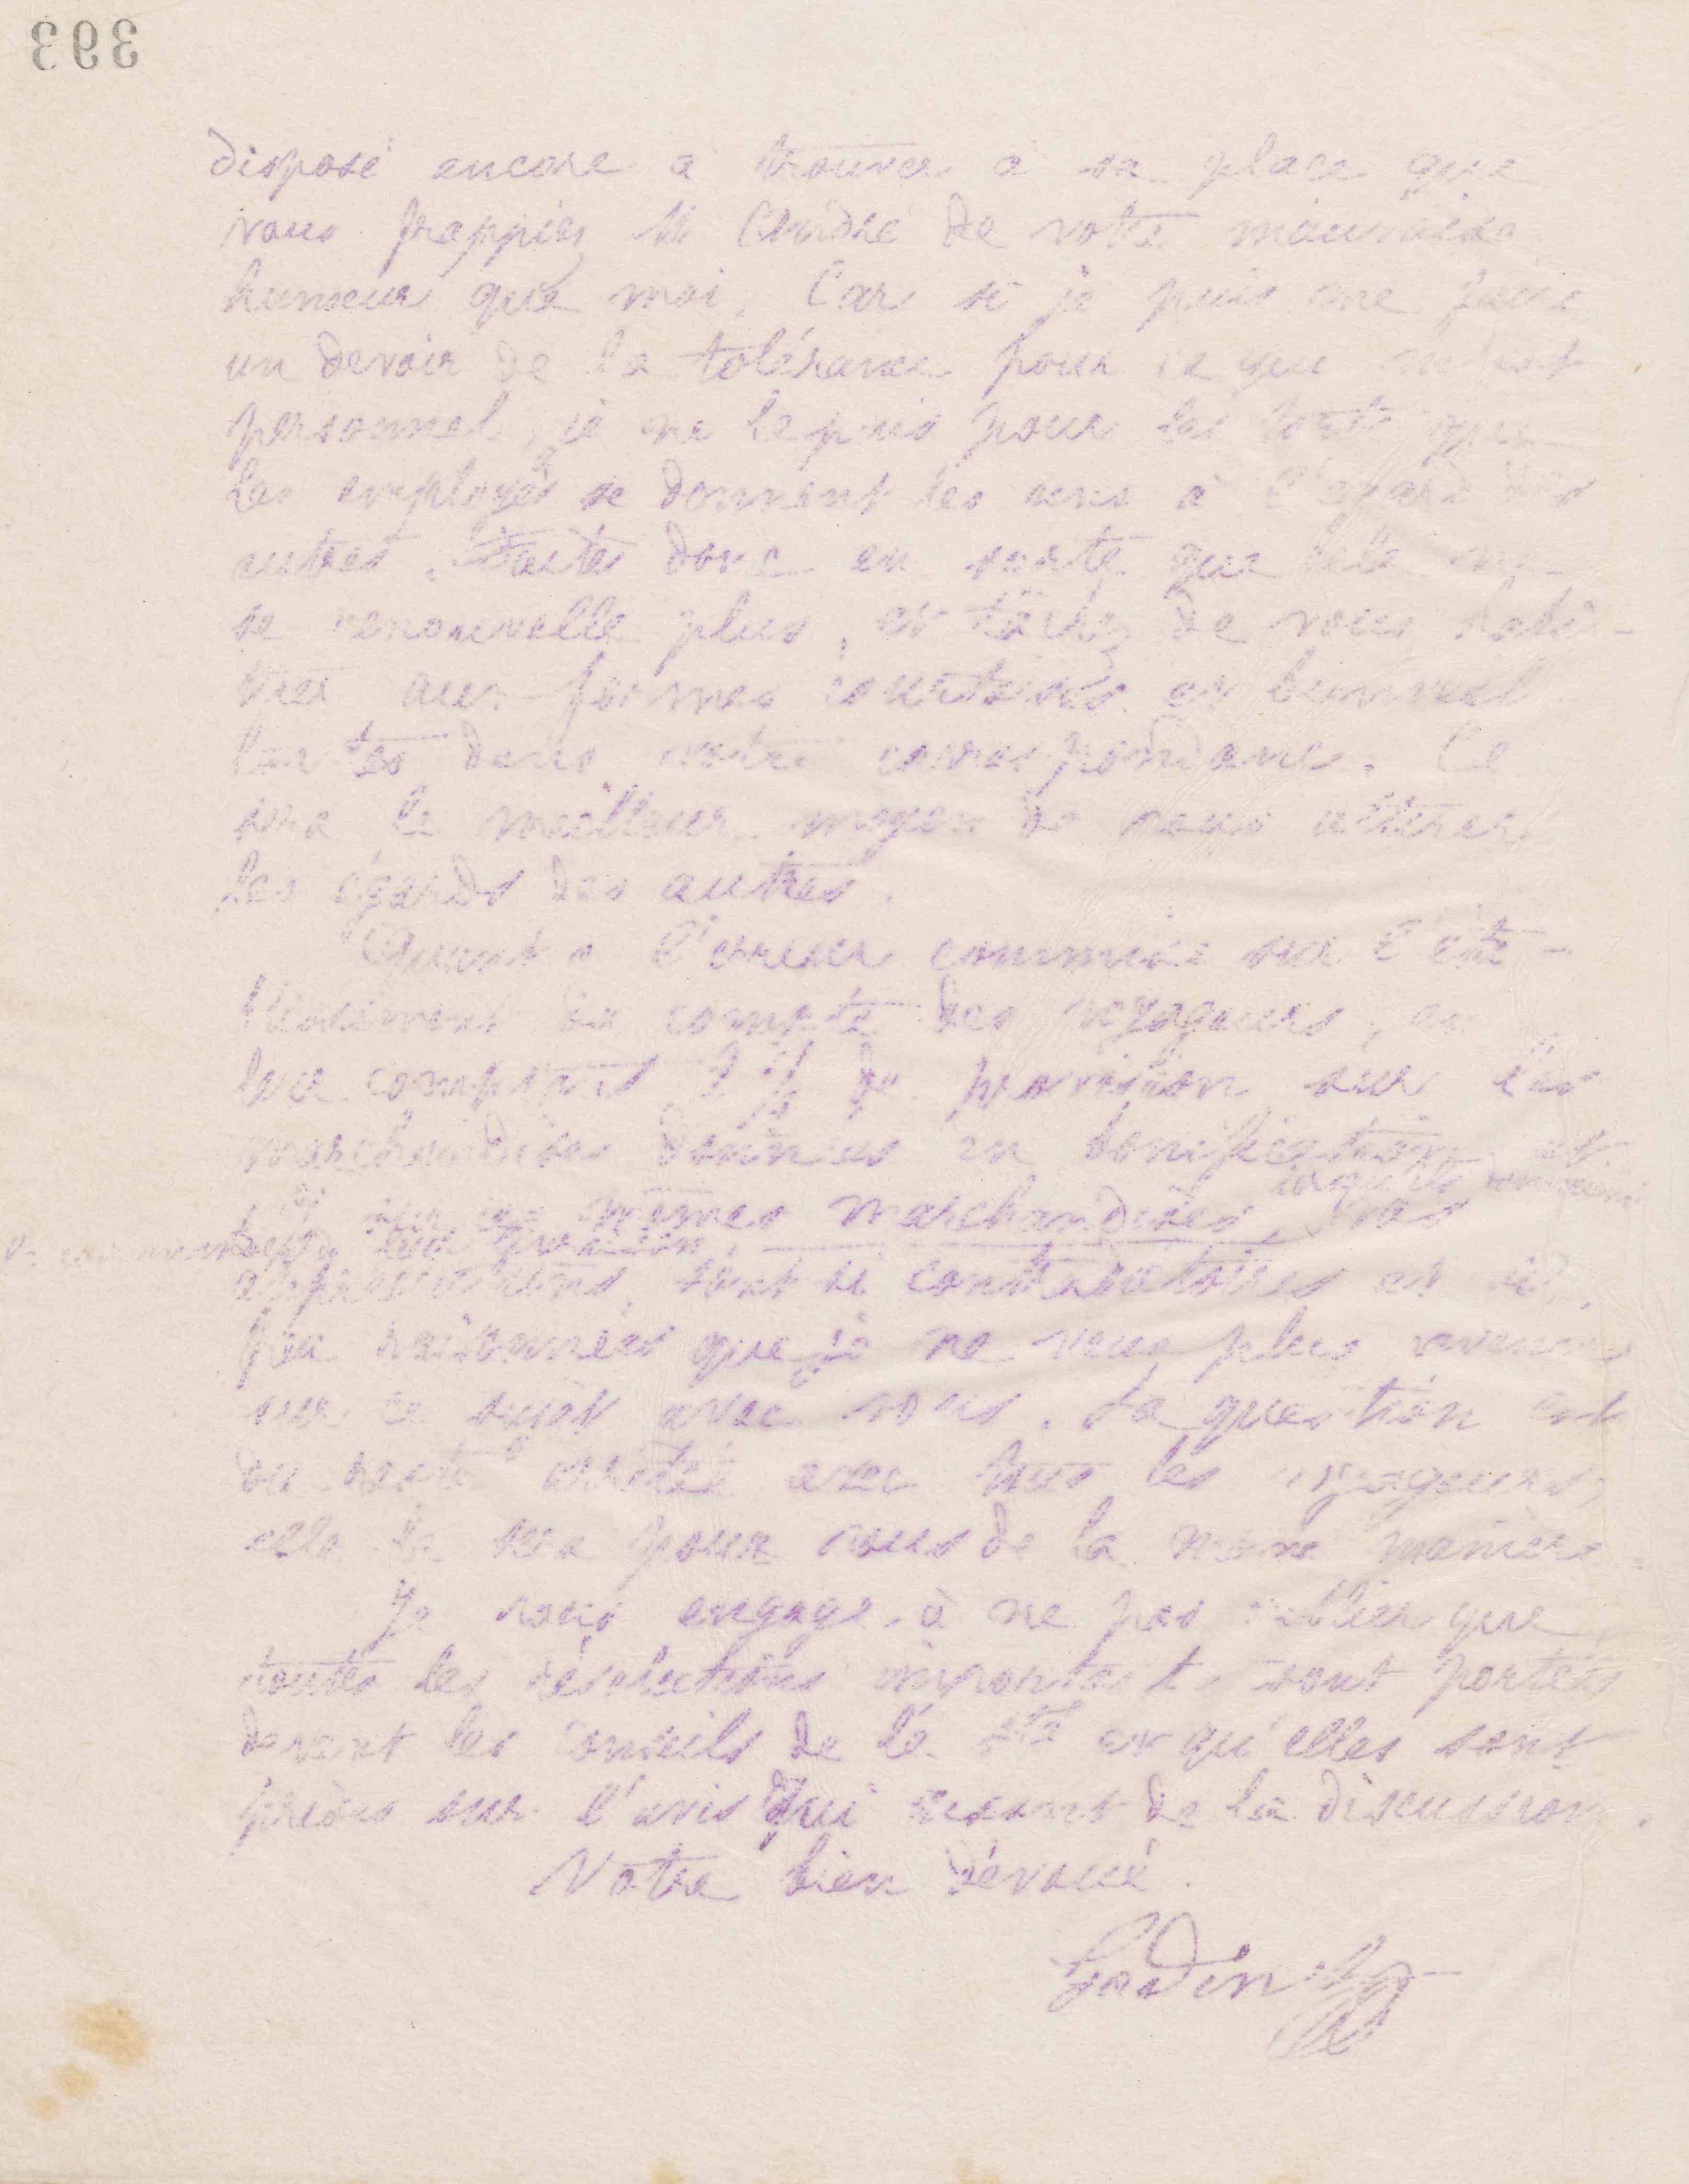 393
disposé encore à trouver à sa place que
vous frappiez M André de votre mauvaise
humeur que moi. Car si je puis me faire
un devoir de la tolérance pour ce qui m'est
personnel, je ne le puis pour les torts que
les employés se donnent les uns à l'égard des
autres. Faites donc en sorte que cela ne
se renouvelle plus, et tâchez de vous habi-
tuer aux formes courtoises et bienveil
lantes dans votre correspondance. Ce
sera le meilleur moyen de vous attirer
les égards des autres.
Quant à l'erreur commise sur l'éta-
blissement du compte des voyageurs, en
leur comptant % de provision sur les
marchandises données en bonification et
sur ces mêmes marchandises, vos
appréciations, sont si contradictoires et si
peu raisonnées que je ne veux plus revenir
sur ce sujet avec vous. La question est
du reste arrêtée avec tous les voyageurs,
elle le sera pour vous de la même manière
Je vous engage à ne pas oublier que
toutes les résolutions importantes sont portées
devant les conseils de la Sté et qu'elles sont
prises sur l'avis qui ressort de la discussion.
Votre bien dévoué.
Godin